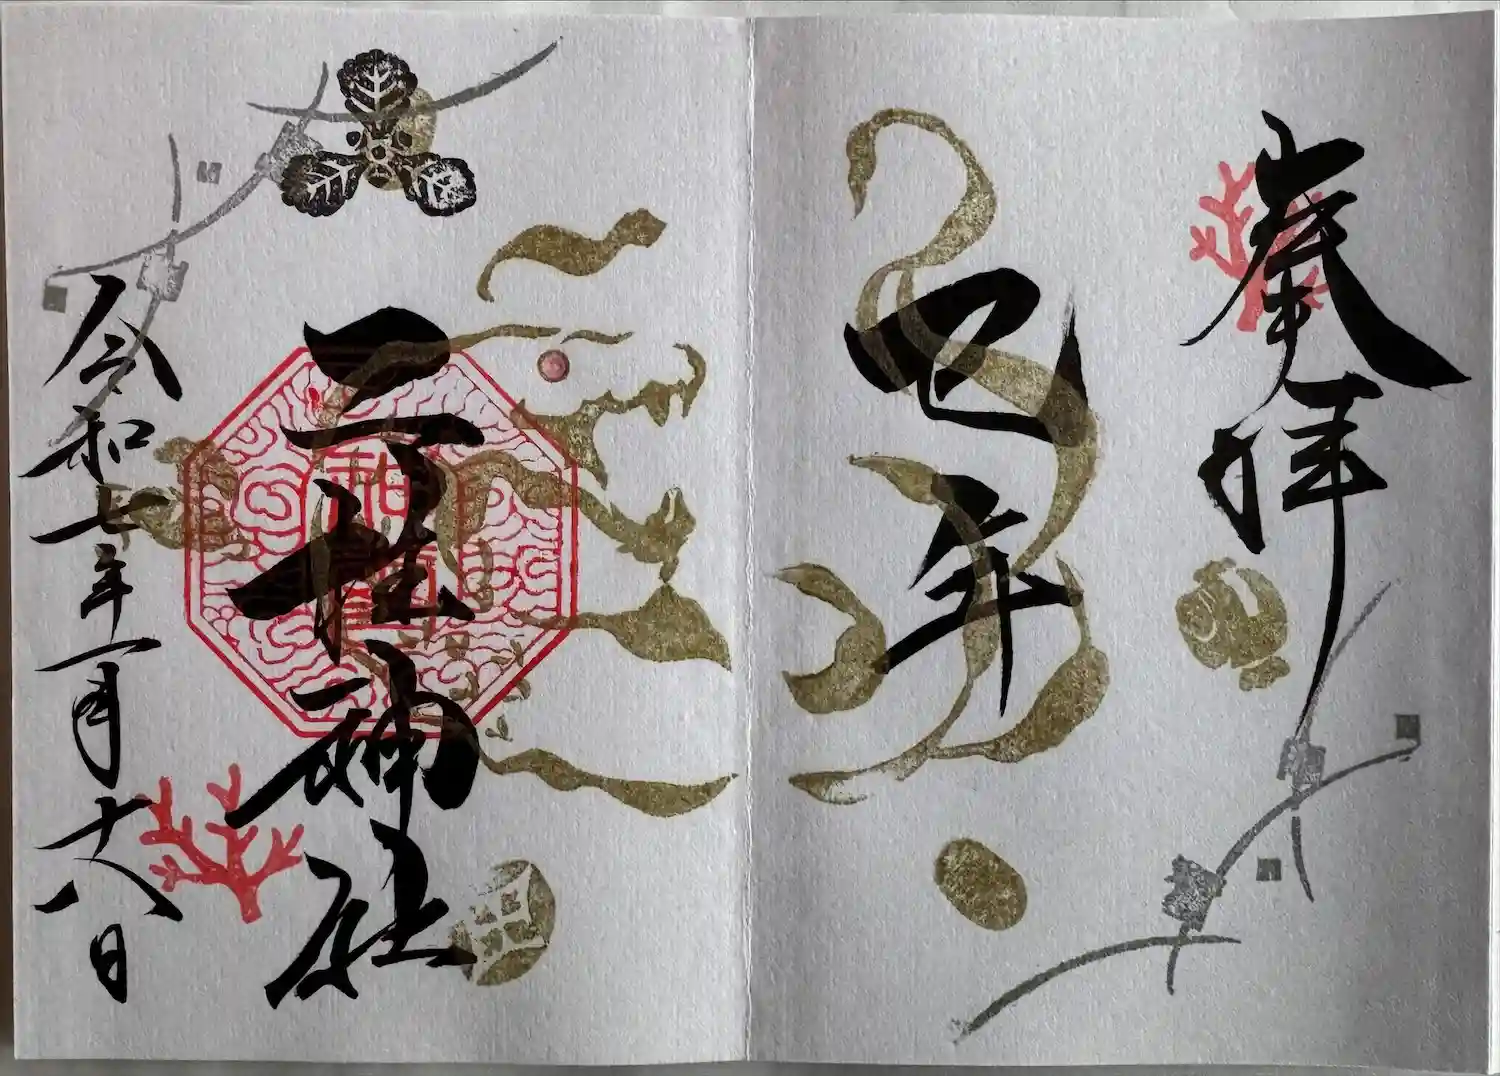 奉拝
巳年
二柱神社
令和七年一月十八日